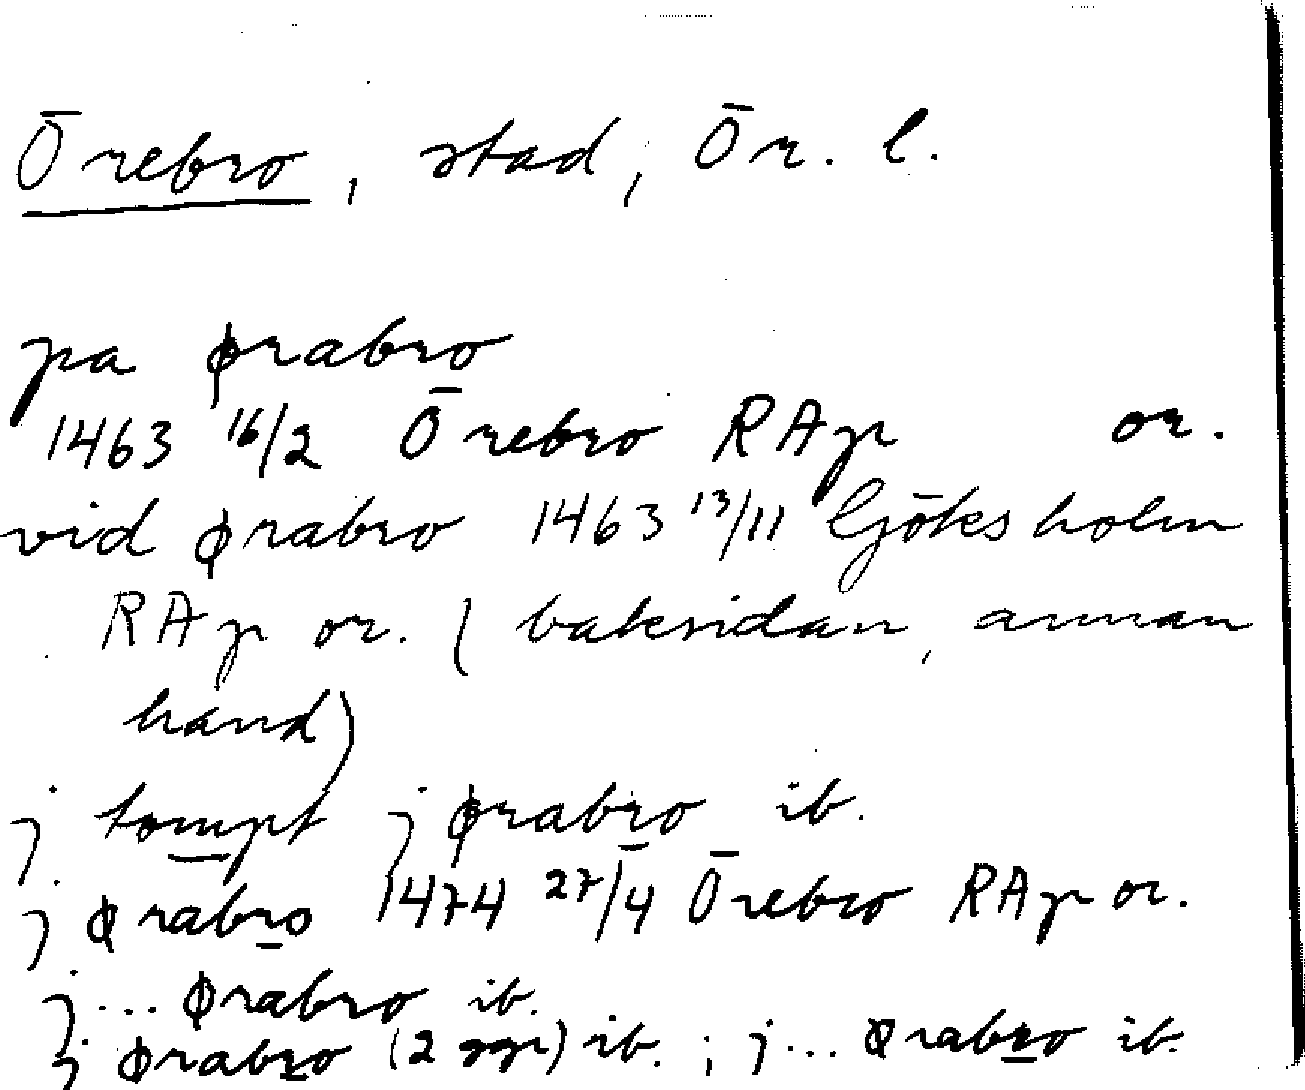 Örebro, stad, Ör. l.
pa ørabro
1463 16/2 Örebro RAp or.
vid ørabro 1463 13/11 Göksholm
RAp or. (baksidan, annan
hand)
j tompt j ørabro ib.
j ørabro 1474 27/4 Örebro RAp or.
j... ørabro ib.
j ørabro (2 ggr) ib. ; j... ørabro ib.